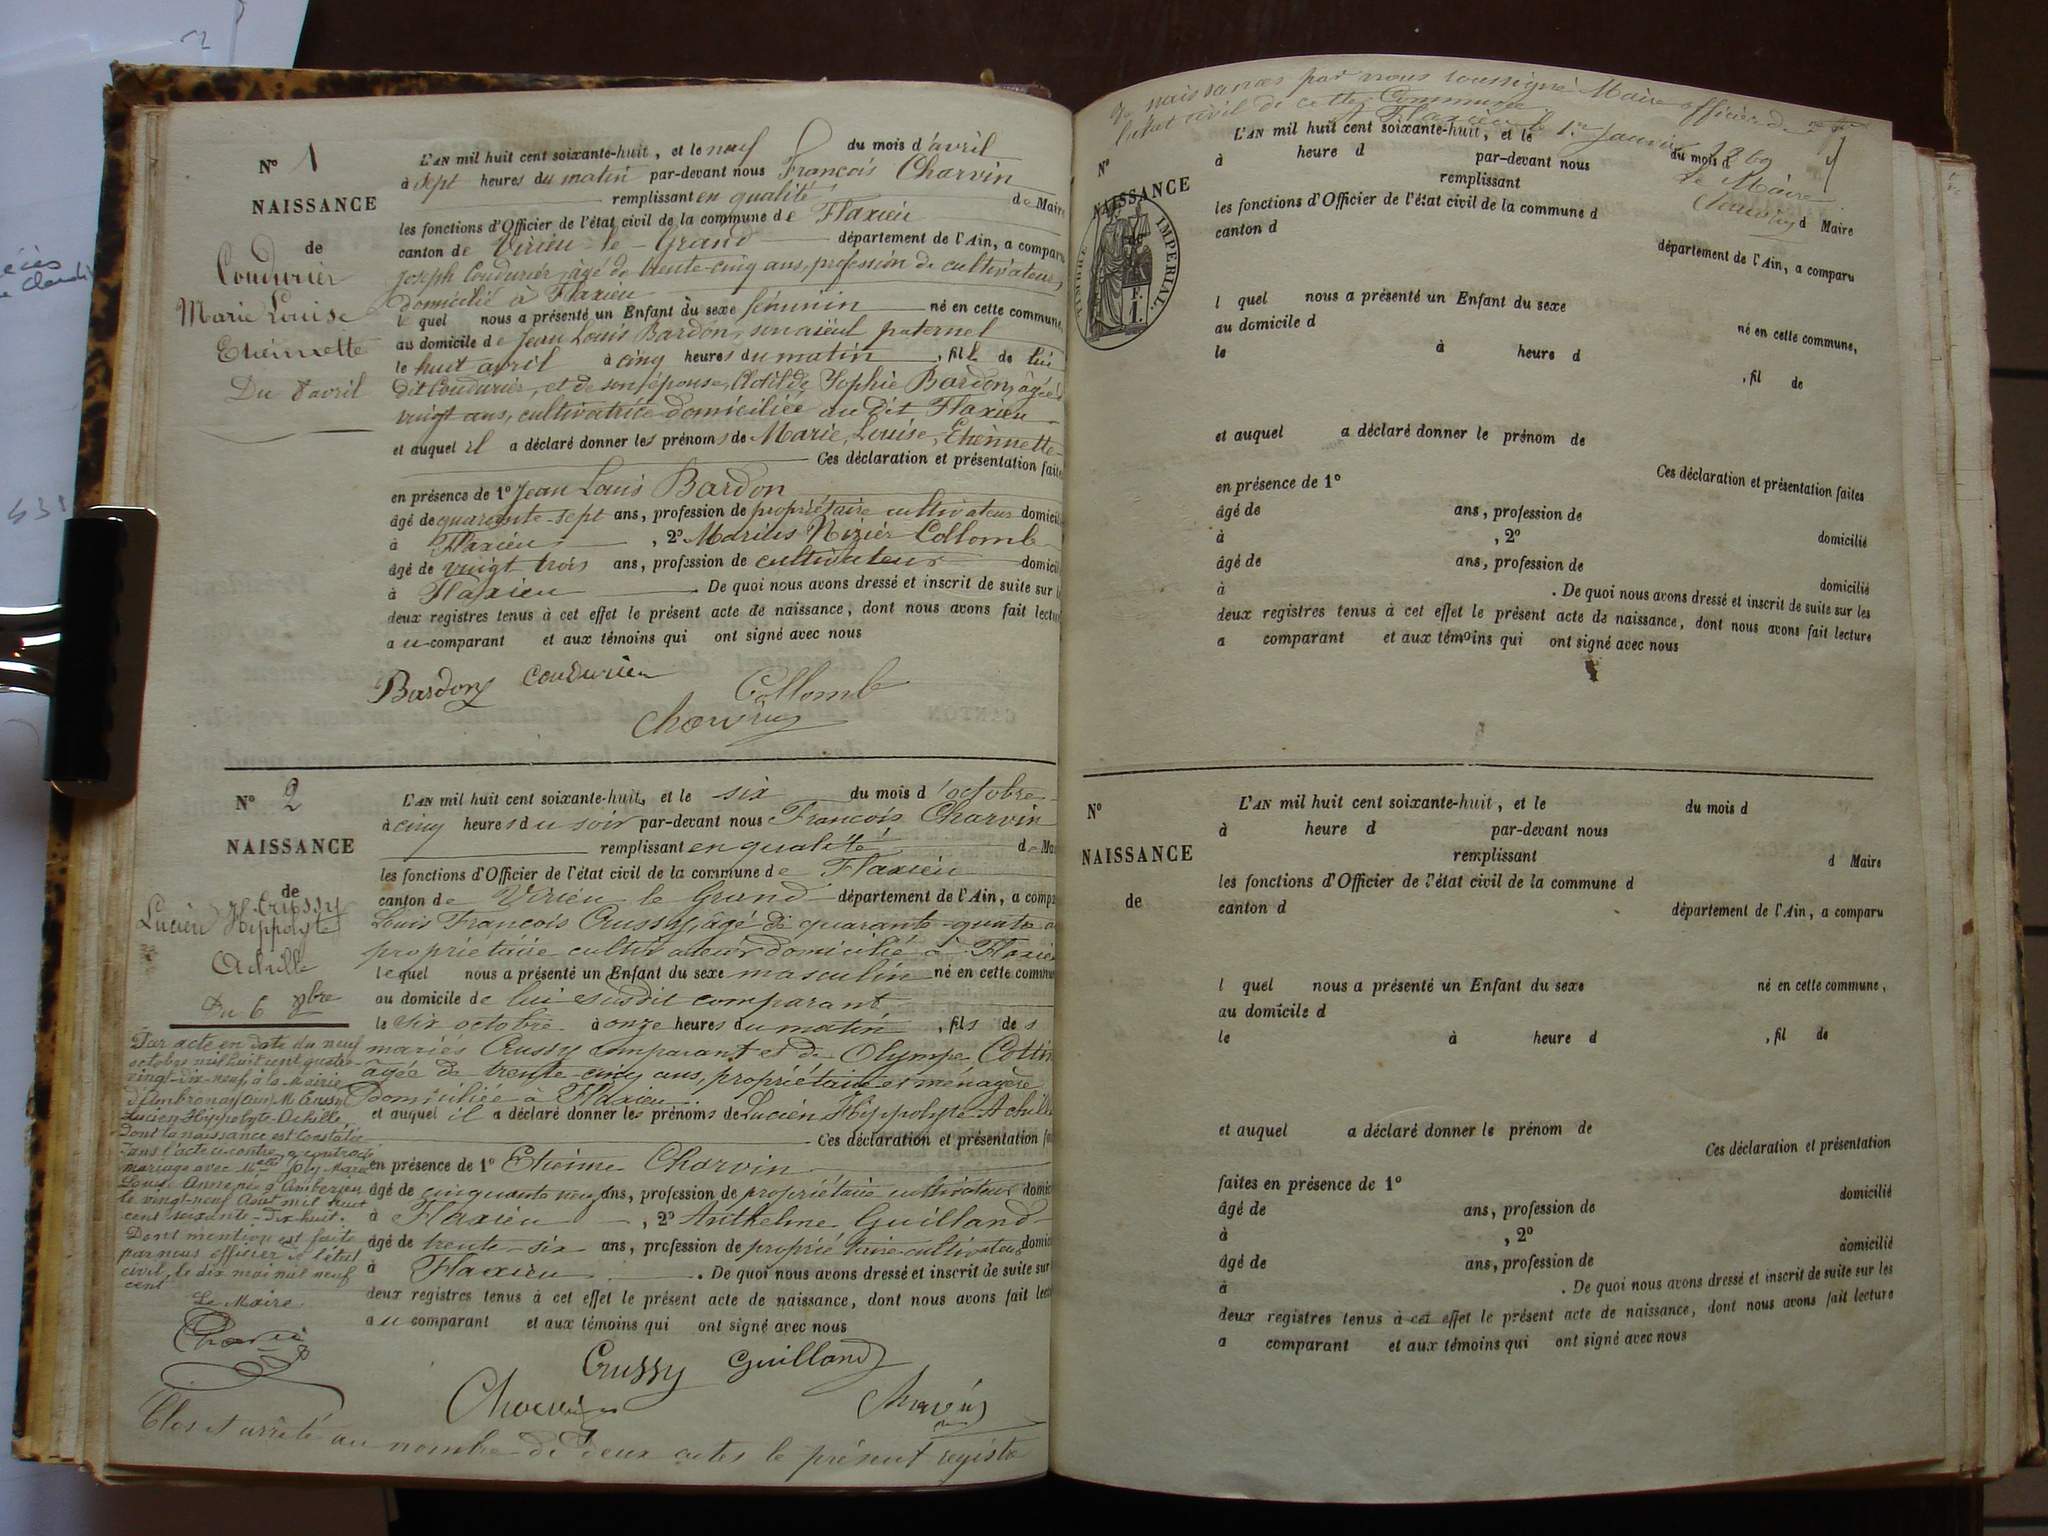 N° 1
NAISSANCE
de
Coudurier
Marie Louise
Etiennette
Du 8 avril
L'AN mil huit cent soixante-huit, et le neuf du mois d'avril
à sept heures du matin par-devant nous François Charvin
remplissant en qualité de Maire
les fonctions d'Officier de l'état civil de la commune de Flaxieu
canton de Virieu-le-Grand département de l'Ain, a comparu
Joseph Coudurier, âgé de trente-cinq ans, profession de cultivateur,
domicilié à Flaxieu
le quel nous a présenté un Enfant du sexe féminin né en cette commune,
au domicile de Jean Louis Bardon, son aïeul paternel
le huit avril à cinq heures du matin, fille de lui
dit Coudurier, et de son épouse, Clotilde Sophie Bardon, âgée
vingt ans, cultivatrice domiciliée au dit Flaxieu
et auquel il a déclaré donner les prénoms de Marie, Louise, Etiennette
Ces déclaration et présentation faites
en présence de 1° Jean Louis Bardon
âgé de quarante-sept ans, profession de propriétaire cultivateur domicilié
à Flaxieu, 2° Marius Nizier Collomb
âgé de vingt trois ans, profession de cultivateur domicilié
à Flaxieu De quoi nous avons dressé et inscrit de suite sur les
deux registres tenus à cet effet le présent acte de naissance, dont nous avons fait lecture
au comparant et aux témoins qui ont signé avec nous
Bardon Coudurier Collomb
Charvin
N° 2
NAISSANCE
de
Crussy
Lucien Hippolyte
Achille
Du 6 8bre
L'AN mil huit cent soixante-huit, et le six du mois d'octobre
à cinq heures du soir par-devant nous François Charvin
remplissant en qualité de Maire
les fonctions d'Officier de l'état civil de la commune de Flaxieu
canton de Virieu le Grand département de l'Ain, a comparu
Louis François Crussy, âgé de quarante-quatre ans
propriétaire cultivateur domicilié à Flaxieu
lequel nous a présenté un Enfant du sexe masculin né en cette commune
au domicile de lui susdit comparant
le six octobre à onze heures du matin, fils des
mariés Crussy comparant et de Olympe Cottin
âgée de trente-cinq ans, propriétaire et ménagère
Domiciliée à Flaxieu.
et auquel il a déclaré donner les prénoms de Lucien Hippolyte Achille
Ces déclaration et présentation faites
en présence de 1° Etienne Charvin
âgé de cinquante neuf ans, profession de propriétaire cultivateur domicilié
à Flaxieu, 2° Anthelme Guilland
âgé de trente-six ans, profession de propriétaire cultivateur domicilié
à Flaxieu. De quoi nous avons dressé et inscrit de suite sur
deux registres tenus à cet effet le présent acte de naissance, dont nous avons fait lecture
au comparant et aux témoins qui ont signé avec nous
Crussy Guilland
Charvin Charvin
Par acte en date du neuf
octobre mil huit cent quatre-
vingt-dix-neuf, à la Mairie
d'Ambronay (Ain) M. Crussy
Lucien-Hippolyte-Achille,
Dont la naissance est constatée
dans l'acte ci-contre, a contracté
mariage avec Melle Joly Marie
Louise Anne née à Ambérieu
le vingt-neuf Août mil huit
cent soixante-dix-huit.
Dont mention est faite
par nous officier de l'état
civil, le dix mai mil neuf
cent
Le Maire
Clos et arrêté au nombre de deux actes le présent registre
de naissances par nous soussigné Maire officier de
l'état civil de cette Commune
à Flaxieu le 1er Janvier 1869
Le Maire
Charvin
N°
NAISSANCE
TIMBRE IMPERIAL
F.
1.
L'AN mil huit cent soixante-huit, et le du mois d
à heure d par-devant nous
remplissant d Maire
les fonctions d'Officier de l'état civil de la commune d
canton d département de l'Ain, a comparu
l quel nous a présenté un Enfant du sexe né en cette commune,
au domicile d
le à heure d, fil de
et auquel a déclaré donner le prénom de
Ces déclaration et présentation faites
en présence de 1°
âgé de ans, profession de
à, 2° domicilié
âgé de ans, profession de domicilié
à. De quoi nous avons dressé et inscrit de suite sur les
deux registres tenus à cet effet le présent acte de naissance, dont nous avons fait lecture
a comparant et aux témoins qui ont signé avec nous
N°
NAISSANCE
de
L'AN mil huit cent soixante-huit, et le du mois d
à heure d par-devant nous
remplissant d Maire
les fonctions d'Officier de l'état civil de la commune d
canton d département de l'Ain, a comparu
l quel nous a présenté un Enfant du sexe né en cette commune,
au domicile d
le à heure d, fil de
et auquel a déclaré donner le prénom de
Ces déclaration et présentation
faites en présence de 1° domicilié
âgé de ans, profession de
à, 2° domicilié
âgé de ans, profession de
à. De quoi nous avons dressé et inscrit de suite sur les
deux registres tenus à cet effet le présent acte de naissance, dont nous avons fait lecture
a comparant et aux témoins qui ont signé avec nous